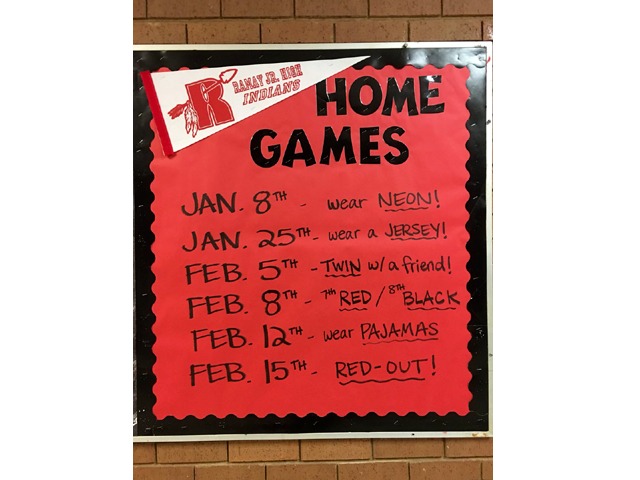 R RAMAY JR. HIGH
INDIANS
HOME
GAMES
JAN. 8TH - wear NEON!
JAN. 25TH - wear a JERSEY!
FEB. 5TH - TWIN w/a friend!
FEB. 8TH - 7TH RED / 8TH BLACK
FEB. 12TH - wear PAJAMAS
FEB. 15TH - RED-OUT!